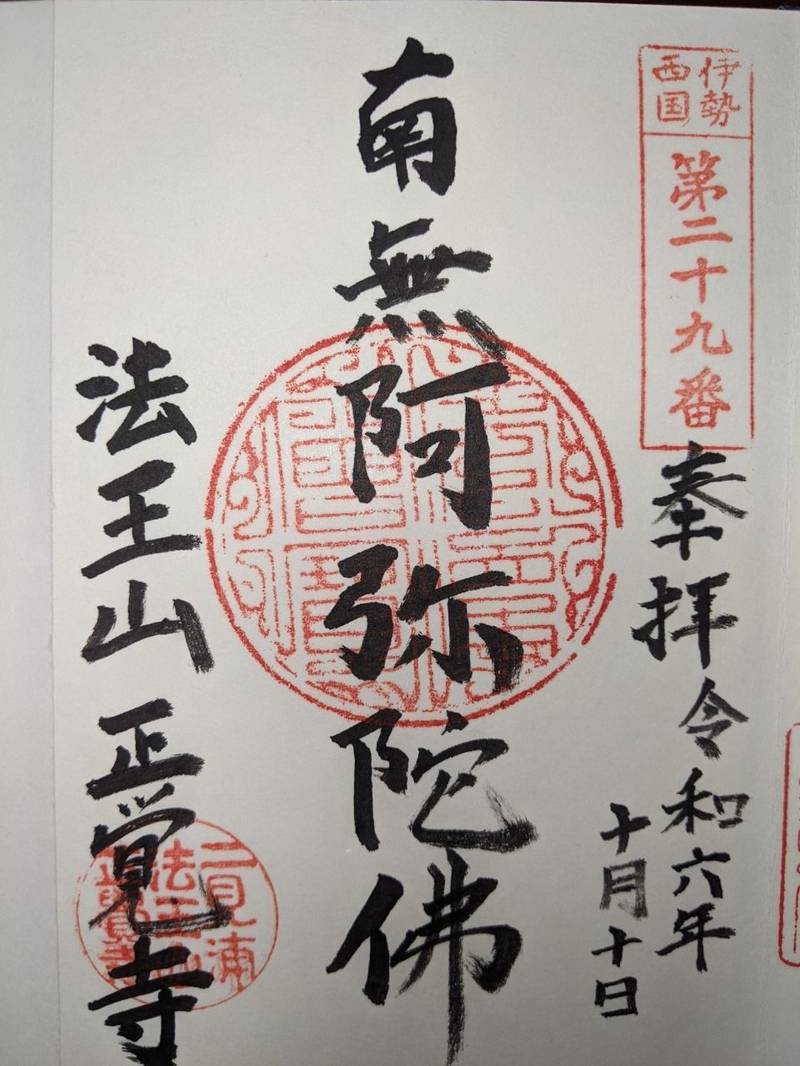 伊勢
西国
第二十九番
奉拝
令和六年
十月十日
南無阿弥陀佛
法王山 正覚寺
二見浦
法王山
正覚寺